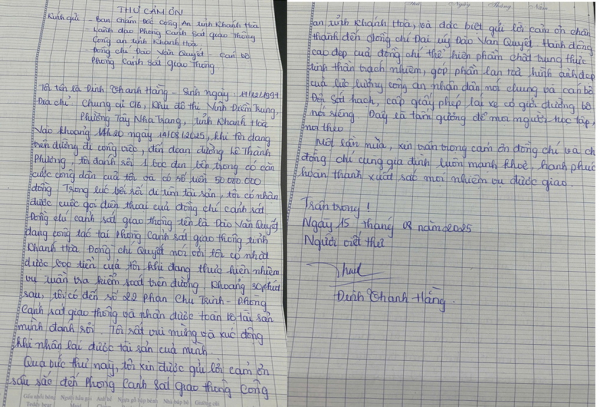 THƯ CẢM ƠN
Kính gửi: - Ban Giám Đốc Công An tỉnh Khánh Hòa
- Lãnh đạo Phòng Cảnh Sát giao Thông
Công an tỉnh Khánh Hòa
- Đồng chí Đào Văn Quyết - Cán bộ
Phòng Cảnh Sát giao Thông
Tôi tên là Đinh Thanh Hằng - Sinh ngày
Địa chỉ: Chung cư CT6, Khu đô thị Vĩnh Điềm Trung,
Phường Tây Nha Trang, tỉnh Khánh Hòa
Vào khoảng ngày 14/08/2025, khi tôi đang
trên đường đi công việc, đến đoạn đường Lê Thành
Phương, tôi đánh rơi 1 bao đen bên trong có căn
cước công dân của tôi và có số tiền 50.000.000
đồng. Trong lúc bối rối đi tìm tài sản, tôi có nhận
được cuộc gọi điện thoại của đồng chí cảnh sát
Đồng chí cảnh sát giao thông tên là Đào Văn Quyết
đang công tác tại Phòng Cảnh Sát giao thông tỉnh
Khánh Hòa. Đồng chí Quyết nói với tôi có nhặt
được bao tiền của tôi khi đang thực hiện nhiệm
vụ tuần tra kiểm soát trên đường. Khoảng phút
sau, tôi có đến số 22 Phan Chu Trinh - Phòng
Cảnh sát giao thông và nhận được toàn bộ tài sản
mình đánh rơi. Tôi rất vui mừng và xúc động
khi nhận lại được tài sản của mình.
Qua bức thư này, tôi xin được gửi lời cảm ơn
sâu sắc đến Phòng Cảnh Sát giao thông Công
an tỉnh Khánh Hòa, và đặc biệt gửi lời cảm ơn chân
thành đến đồng chí Đại úy Đào Văn Quyết. Hành động
cao đẹp của đồng chí thể hiện phẩm chất trung thực
tinh thần trách nhiệm, góp phần lan tỏa hình ảnh đẹp
của lực lượng công an nhân dân nói chung và cán bộ
Đội Sát hạch, cấp giấy phép lái xe cơ giới đường bộ
nói riêng. Đây là tấm gương để mọi người học tập,
noi theo.
Một lần nữa, xin trân trọng cảm ơn đồng chí và chúc
đồng chí cùng gia đình luôn mạnh khỏe, hạnh phúc
hoàn thành xuất sắc mọi nhiệm vụ được giao.
Trân trọng!
Ngày 15 tháng 08 năm 2025
Người viết thư
Đinh Thanh Hằng